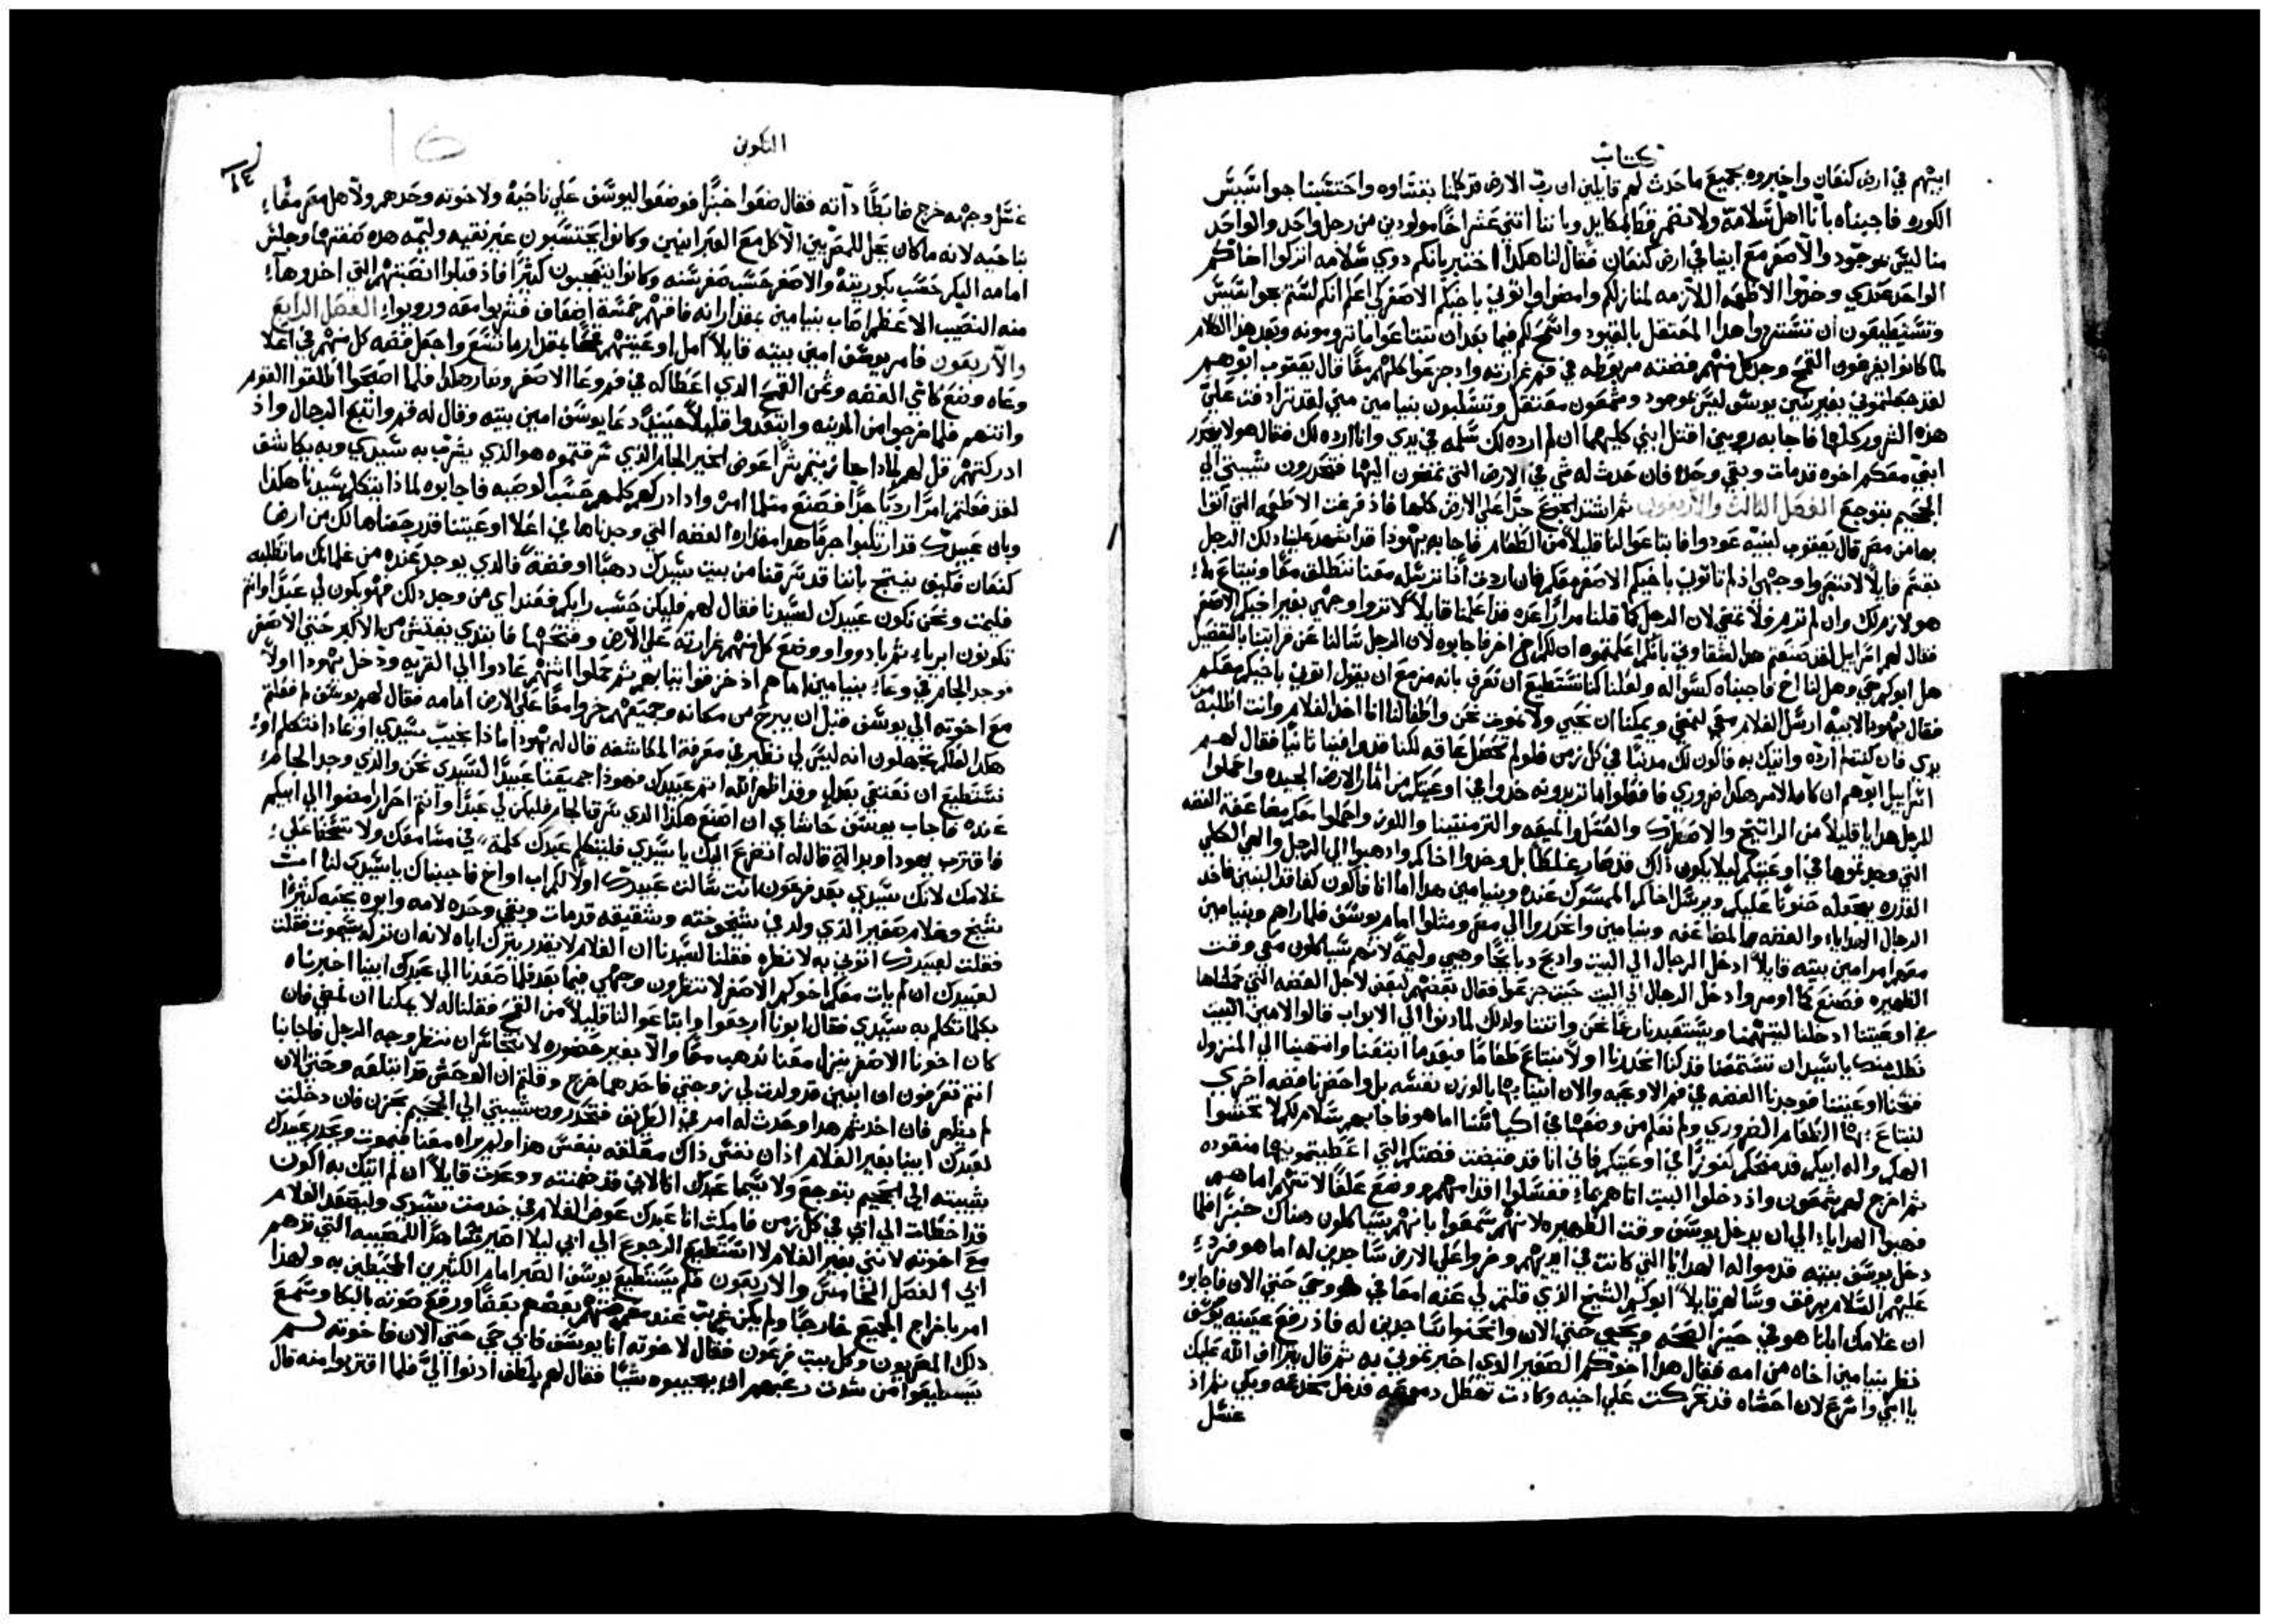 كتاب
ابيهم في ارض كنعان واخبروه بجميع ما حدث لهم قايلين ان ربّ الارض قد كلمنا بقساوه واحتسبنا جواسيس
الكوره فاجبناه باننا اهل سلامة ولا نضمر قط المكايل وباننا اثني عشر اخًا مولودين من رجل واحد والواحد
منا ليس بموجود والاصغر مع ابينا في ارض كنعان فقال لنا هكذا اختبر بانكم ذوي سلامه اتركوا اخاكم
الواحد عندي وخذوا الاطعمه اللازمه لمنازلكم وامضوا واتوني باخيكم الاصغر لكي اعلم انكم لستم بجواسيس
وتستطيعون ان تستردوا هذا المعتقل بالقيود واسمح لكم فيما بعد ان تبتاعوا ما ترومونه وبعد هذا الكلام
لما كانوا يفرغون القمح وجد كل منهم فضته مربوطه في فم غرارته واذ جزعوا كلهم معًا قال يعقوب ابوهم
لقد جعلتموني بغير بنين يوسف ليس بموجود وشمعون معتقل وتسلبون بنيامين مني لقد ترادفت عليّ
هذه الشرور كلها فاجابه روبين اقتل ابنيّ كليهما ان لم ارده لك سلمه في يدي وانا ارده لك فقال هو لا ينحدر
ابني معكم اخوه قد مات وبقي وحده فان حدث له شي في الارض التي تمضون اليها فتحدرون شيبتي الي
الجحيم بتوجع الفصل الثالث والاربعون ثم اشتد الجوع جدًا علي الارض كلها فاذ فرغت الاطعمه التي اتوا
بها من مصر قال يعقوب لبنيه عودوا فابتاعوا لنا قليلاً من الطعام فاجابه يهوذا قد اشهد علينا ذلك الرجل
بقسم قايلاً لا تنظروا وجهي اذ لم تاتوني باخيكم الاصغر معكم فان اردت اذًا ترسله معنا ننطلق معًا ونبتاع ما
هو لازم لك وان لم ترد فلا نمضي لان الرجل كما قلنا مرارًا عده قد اعلنا قايلاً لا تروا وجهي بغير اخيكم الاصغر
فقال لهم اسراييل لقد صنعتم هذا لشقاوتي بانكم اعلمتموه ان لكم اخ اخر فاجابوه لان الرجل سالنا عن قرابتنا بالتفصيل
هل ابوكم حي وهل لنا اخ فاجبناه كسواله ولعلنا كنا نستطيع ان نعرف بانه مزمع ان يقول اتوني باخيكم معكم
فقال يهوذا لابيه ارسل الغلام معي لنمضي ويمكننا ان نحيي ولا نموت نحن واطفالنا انا اخذ الغلام وانت اطلبه من
يدي فان كنت لم ارده واتيك به فاكون لك مذنبًا في كل زمن فلو لم تحصل عاقه لكنا قد وافينا ثانيًا فقال لهم
اسراييل ابوهم ان كان الامر هكذا ضروري فافعلوا ما تريدونه خذوا في اوعيتكم من اثمار الارض الجيده واحملوا
للرجل هدايا قليلاً من الراتنج والاصطرك والعسل والميعه والترمنتينا واللوز واحملوا معكم مضاعفة الفضه
التي وجدتموها في اوعيتكم ليلا يكون ذلك قد صار غلطًا بل وخذوا اخاكم واذهبوا الي الرجل والهي الكلي
القدره يجعله حنونًا عليكم ويرسل اخاكم الممسوك عنده وبنيامين هذا اما انا فاكون كفاقد البنين فاخذ
الرجال الهدايا والفضه المضاعفه وبنيامين وانحدروا الي مصر ومثلوا امام يوسف فلما راهم وبنيامين
معهم امر امين بيته قايلاً ادخل الرجال الي البيت واذبح ذبايحًا وهيي وليمةً لانهم سياكلون معي وقت
الظهيره فصنع كما اومر وادخل الرجال الي البيت حيث جزعوا فقال بعضهم لبعض لاجل الفضه التي حملناها
في اوعيتنا ادخلنا ليتهمنا ويستعبدنا رغمًا نحن واتننا ولذلك لما دنوا الي الابواب قالوا لامين البيت
نطلب منك يا سيد ان تستمعنا قد كنا انحدرنا اولاً لنبتاع طعامًا فبعد ما ابتعنا وانتهينا الي المنزول
فتحنا اوعيتنا فوجدنا الفضه في فم الاوعيه والان اتينا بها بالوزن نفسه بل واحضرنا فضه اخري
لنبتاع بها الطعام الضروري ولم نعلم من وضعها في اكياسنا اما هو فاجابهم سلام لكم لا تخشوا
الهكم واله ابيكم قد منحكم كنوزًا في اوعيتكم فاني انا قد قبضت فضتكم التي اعطيتموني بها منقوده
ثم اخرج لهم شمعون واذ دخلوا البيت اتاهم بماء فغسلوا اقدامهم ووضع علفًا لاتنهم اما هم
فهيوا الهدايا الي ان يدخل يوسف وقت الظهيره لانهم سمعوا بانهم سياكلون هناك خبزًا فلما
دخل يوسف بيته قدموا له الهدايا التي كانت في ايديهم وخروا علي الارض ساجدين له اما هو فرد
عليهم السلام برفق وسالهم قايلاً ابوكم الشيخ الذي قلتم لي عنه امعافي هو وحي حتي الان فاجابوه
ان غلامك ابانا هو في حيز الصحه ويحيي حتي الان وانحنوا ساجدين له فاذ رفع عينيه يوسف
نظر بنيامين اخاه من امه فقال هذا اخوكم الصغير الذي اخبرتموني به ثم قال يتراف الله عليك
يا ابني واسرع لان احشاه قد تحركت علي اخيه وكادت تهطل دموعه فدخل مخدعه وبكي ثم اذ
غسل
التكوين
غسل وجهه خرج ضابطًا ذاته فقال ضعوا خبزًا فوضعوا ليوسف علي ناحية ولاخوته وحدهم ولاهل مصر معًا
ناحيه لانه ما كان يحل للمصريين الاكل مع العبرانيين وكانوا يحتسبون غير نقيه وليمه هذه صفتها وجلس
امامه البكر حسب بكوريته والاصغر حسب صغر سنه وكانوا يتعجبون كثيرًا فاذ قبلوا انصبتهم التي اخذوها
منه النصيب الاعظم اصاب بنيامين بمقدار انه فاقهم خمسة اضعاف فشربوا معه ورويوا الفصل الرابع
والاربعون فامر يوسف امين بيته قايلاً املا اوعيتهم قمحًا بمقدار ما تسع واجعل فضه كل منهم في اعلا
وعاه وضع كاسي الفضه وثمن القمح الذي اعطاكه في فم وعا الاصغر وصار هكذا فلما اصبحوا اطلقوا القوم
واتنهم فلما خرجوا من المدينه وابتعدوا قليلاً حينيذ دعا يوسف امين بيته وقال له قم واتبع الرجال واذ
ادركتهم قل لهم لماذا جازيتم شرًا عوض الخير الجام الذي سرقتموه هو الذي يشرب به سيدي وبه يكاشف
لقد فعلتم امرًا رديًا جدًا فصنع مثلما امره واذ ادركهم كلمهم حسب الوصيه فاجابوه لماذا يتكلم سيدنا هكذا
وبان عبيدك قد ارتكبوا جرمًا هذا مقداره الفضه التي وجدناها في اعلا اوعيتنا قد رجعناها لك من ارض
كنعان فكيف ينتج باننا قد سرقنا من بيت سيدك ذهبًا او فضةً فالذي يوجد عنده من غلمانك ما تطلبه
فليمت ونحن نكون عبيدك لسيدنا فقال لهم فليكن حسب رايكم فعند اي من وجد ذلك فهو يكون لي عبدًا وانتم
تكونون ابرياء ثم بادروا ووضع كل منهم غرارته علي الارض وفتحها فابتدي يفتش من الاكبر حتي الاصغر
فوجد الجام في وعاء بنيامين اما هم اذ خرقوا ثيابهم ثم حملوا اتنهم عادوا الي القريه ودخل يهوذا اولاً
مع اخوته الي يوسف قبل ان يبرح من مكانه وجميعهم خروا معًا علي الارض امامه فقال لهم يوسف لم فعلتم
هكذا لعلكم تجهلون انه ليس لي نظير في معرفة المكاشفه قال له يهوذا ماذا نجيب سيدي او ماذا نتكلم او
نستطيع ان نعتني بعدل وقد اظهر الله اثم عبيدك فهوذا جميعنا عبيدًا لسيدي نحن والذي وجد الجام
عنده فاجاب يوسف حاشاي ان اصنع هكذا الذي سرق الجام فليكن لي عبدًا وانتم احرار امضوا الي ابيكم
فاقترب يهوذا وبدالة قال له انضرع اليك يا سيدي فليتكلم عبدك كلمة في مسامعك ولا تسخط علي
غلامك لانك سيدي بعد فرعون انت سالت عبيدك اولاً الكم اب او اخ فاجبناك يا سيدي لنا اب
شيخ وغلام صغير الذي ولد في شيخوخته وشقيقه قد مات وبقي وحده لامه وابوه يحبه كثيرًا
فقلت لعبيدك اتوني به لانظره فقلنا لسيدنا ان الغلام لا يقدر يترك اباه لانه ان تركه سيموت فقلت
لعبيدك ان لم يات معكم اخوكم الاصغر لا تنظرون وجهي فيما بعد فلما صعدنا الي عبدك ابينا اخبرناه
بكلما تكلم به سيدي فقال ابونا ارجعوا وابتاعوا لنا قليلاً من القمح فقلنا له لا يمكننا ان نمضي فان
كان اخونا الاصغر ينزل معنا نذهب معًا والا بغير حضوره لا نتجاسر ان ننظر وجه الرجل فاجابنا
انتم تعرفون ان ابنين قد ولدت لي زوجتي فاحدهما خرج وقلتم ان الوحش قد ابتلعه وحتي الان
لم يظهر فان اخذتم هذا وحدث له امر في الطريق فتحدرون شيبتي الي الجحيم بحزن فان دخلت
لعبدك ابينا بغير الغلام اذ ان نفس ذاك معلقه بنفس هذا ولم يراه معنا فيموت وتحدر عبيدك
شيبته الي الجحيم بتوجع ولا سيما عبدك انا لاني قد ضمنته ووعدت قايلاً ان لم اتيك به اكون
قد اخطات الي ابي في كل زمن فامكث انا عبدك عوض الغلام في خدمت سيدي وليصعد الغلام
مع اخوته لانني بغير الغلام لا استطيع الرجوع الي ابي ليلا اصير شاهدًا للمصيبه التي تدهم
ابي الفصل الخامس والاربعون فلم يستطيع يوسف الصبر امام الكثيرين المحيطين به ولهذا
امر باخراج الجميع خارجًا ولم يكن غريب عند معرفتهم بعضهم بعضًا ورفع صوته بالبكا وسمع
ذلك المصريون وكل بيت فرعون فقال لاخوته انا يوسف فابي حي حتي الان فاخوته لم
يستطيعوا من شدت رعبهم ان يجيبوه شيًا فقال لهم بلطف ادنوا اليّ فلما اقتربوا منه قال